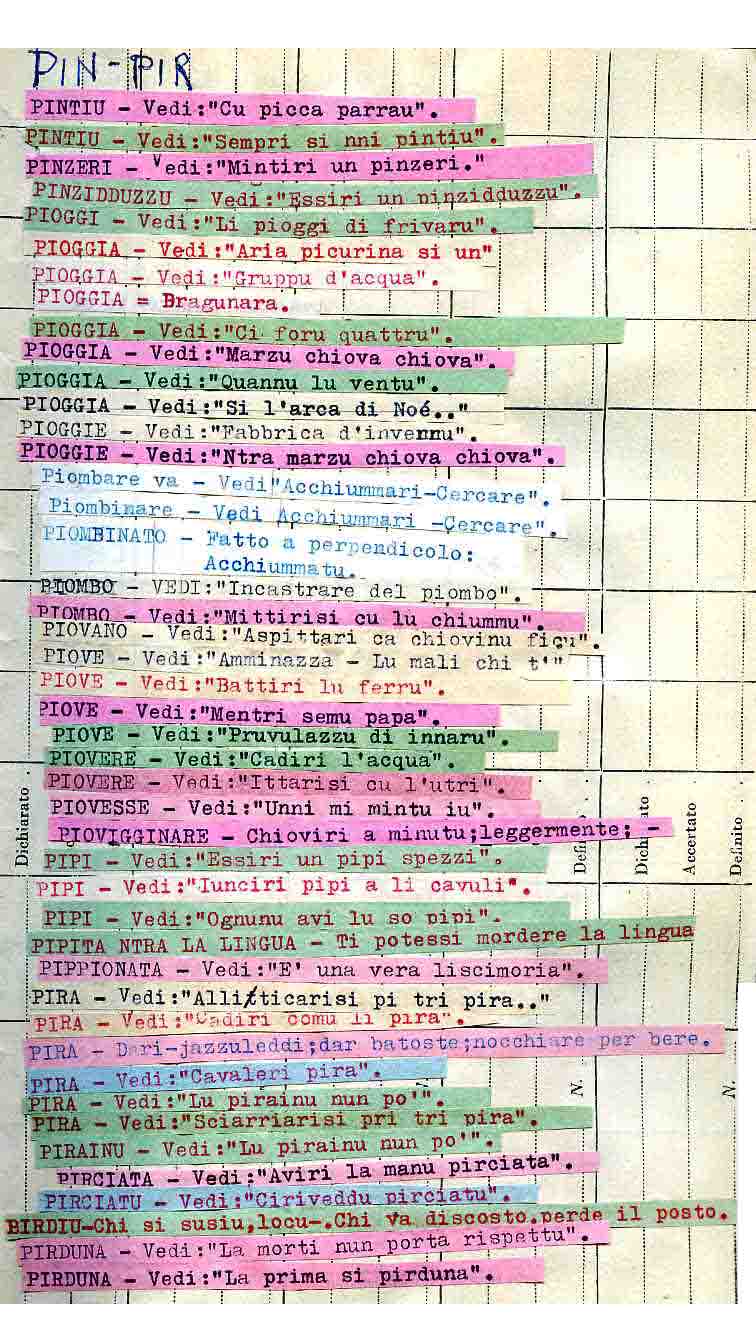 PIN-PIR
PINTIU - Vedi:"Cu picca parrau".
PINTIU - Vedi:"Sempri si nni pintiu".
PINZERI - Vedi:"Mintiri un pinzeri."
PINZIDDUZZU - Vedi:"Essiri un pinzidduzzu".
PIOGGI - Vedi:"Li pioggi di frivaru".
PIOGGIA - Vedi:"Aria picurina si un"
PIOGGIA - Vedi:"Gruppu d'acqua".
PIOGGIA = Bragunara.
PIOGGIA - Vedi:"Ci foru quattru".
PIOGGIA - Vedi:"Marzu chiova chiova".
PIOGGIA - Vedi:"Quannu lu ventu".
PIOGGIA - Vedi:"Si l'arca di Noé.."
PIOGGIE - Vedi:"Fabbrica d'invernu".
PIOGGIE - Vedi:"Ntra marzu chiova chiova".
Piombare va - Vedi"Acchiummari-Cercare".
Piombinare - Vedi Acchiummari -Cercare".
PIOMBINATO - Fatto a perpendicolo:
Acchiummatu.
PIOMBO - VEDI:"Incastrare del piombo".
PIOMBO - Vedi:"Mittirisi cu lu chiummu".
PIOVANO - Vedi:"Aspittari ca chiovinu ficu".
PIOVE - Vedi:"Amminazza - Lu mali chi t'"
PIOVE - Vedi:"Battiri lu ferru".
PIOVE - Vedi:"Mentri semu papa".
PIOVE - Vedi:"Pruvulazzu di innaru".
PIOVERE - Vedi:"Cadiri l'acqua".
PIOVERE - Vedi:"Ittarisi cu l'utri".
PIOVESSE - Vedi:"Unni mi mintu iu".
PIOVIGGINARE - Chioviri a minutu;leggermente; -
Dichiarato
Accertato
Definito
PIPI - Vedi:"Essiri un pipi spezzi".
PIPI - Vedi:"Iunciri pipi a li cavuli".
PIPI - Vedi:"Ognunu avi lu so pipi".
PIPITA NTRA LA LINGUA - Ti potessi mordere la lingua
PIPPIONATA - Vedi:"E' una vera liscimoria".
PIRA - Vedi:"Allitticarisi pi tri pira.."
PIRA - Vedi:"Cadiri comu li pira".
PIRA - Dari-jazzuleddi;dar batoste;nocchiare per bere.
PIRA - Vedi:"Cavaleri pira".
PIRA - Vedi:"Lu pirainu nun po'".
PIRA - Vedi:"Sciarriarisi pri tri pira".
N.
N.
PIRAINU - Vedi:"Lu pirainu nun po'".
PIRCIATA - Vedi:"Aviri la manu pirciata".
PIRCIATU - Vedi:"Ciriveddu pirciatu".
BIRDIU-Chi si susiu,locu-.Chi va discosto.perde il posto.
PIRDUNA - Vedi:"La morti nun porta rispettu".
PIRDUNA - Vedi:"La prima si pirduna".